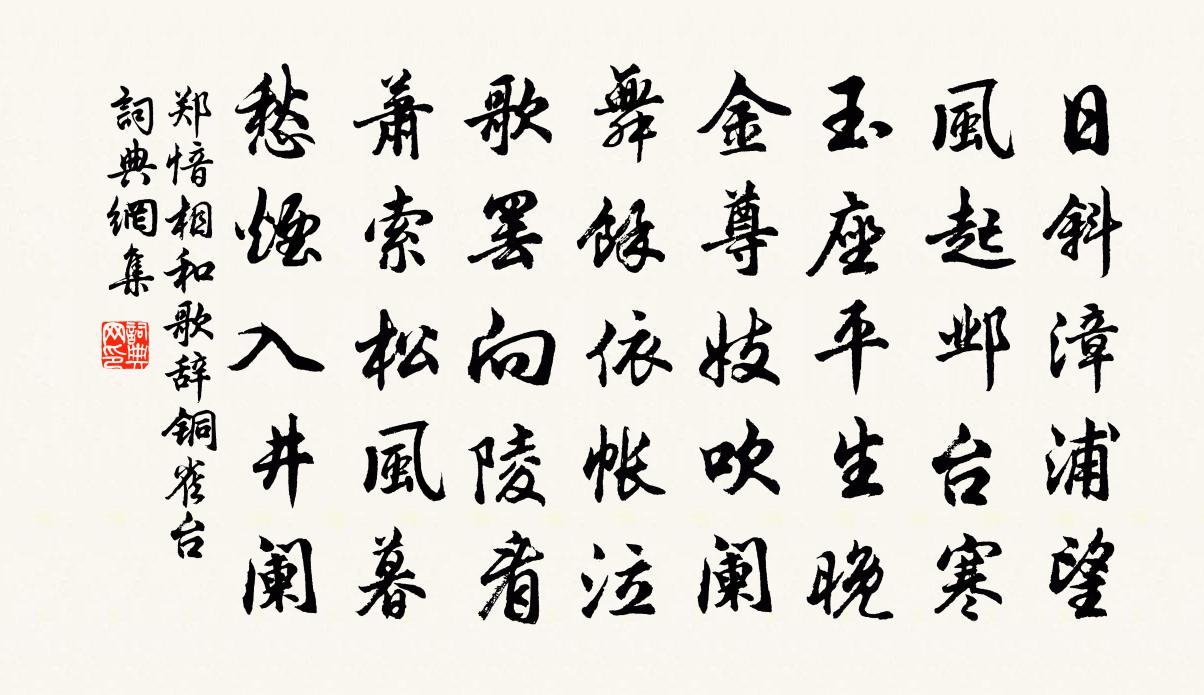 日斜漳浦望
風起邺台寒
玉座平生晚
金尊妓吹阑
舞餘依帐泣
歌罢向陵看
萧索松風暮
愁煙入井阑
郑愔相和歌辞铜雀台
詞典網集
詞典网印